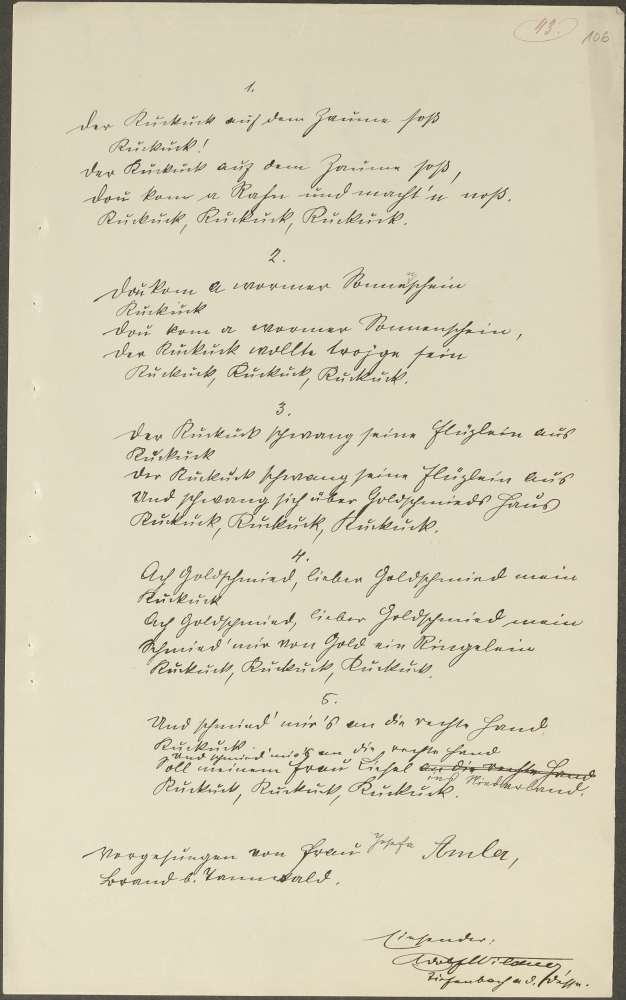 43.
106
1.
Der Kuckuck auf dem Zaume soß
Kuckuck!
Der Kuckuck auf dem Zaume soß,
dou kom a Rahn und macht'n noß.
Kuckuck, Kuckuck, Kuckuck.
2.
Dou kom a wormer Sonneschein
Kuckuck
Dou kom a wormer Sonnenschein,
Der Kuckuck wollte troige sein
Kuckuck, Kuckuck, Kuckuck.
3.
Der Kuckuck schwang seine Flüglein aus
Kuckuck
Der Kuckuck schwang seine Flüglein aus
Und schwang sich über Goldschmieds Haus
Kuckuck, Kuckuck, Kuckuck.
4.
Ach Goldschmied, lieber Goldschmied mein
Kuckuck
Ach Goldschmied, lieber Goldschmied mein
Schmied' mir von Gold ein Ringelein
Kuckuck, Kuckuck, Kuckuck.
5.
Und schmied' mir's an die rechte Hand
Kuckuck.
Und schmied' mir's an die rechte Hand
Soll meinem Frau Liesel an die rechte Hand
ins Niederland.
Kuckuck, Kuckuck, Kuckuck.
Vorgesungen von Frau Josefa Amler,
Brand b. Tannwald.
Einsender:
Adolf Wildner
Tiefenbach a. d. Desse.